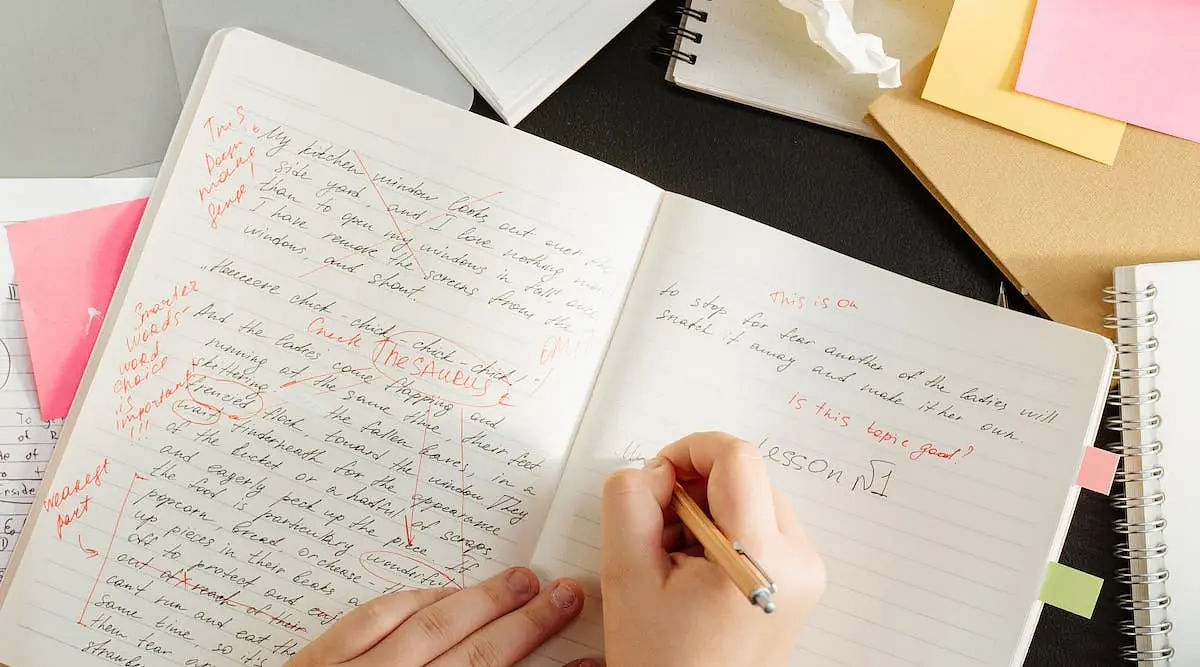 This
Damn
make
My kitchen window looks out over the
side yard, and I love nothing more
than to open my windows in fall once
I have remove the screens from the
windows, and shout.
chick-chick, chick-chick!
Check Thesaurus
And the ladies come flapping and
running at the same time, their feet
skittering the fallen leaves, in a
frenzied flock, toward the window. They
wait underneath for the appearance
of the bucket or a hadful of scraps,
and eagerly peck up the piece. If
the food is particulary wondrful
popcorn, bread, or cheese
up pieces in their beaks
off to protect and
out of reach of their
can't run and eat the
same time, so it's
them tear
Smarter
Woods
word
choice
is
important
!!!
weakest
part
This is ok
to stop for fear another of the ladies will
snatch it away and make it her own.
Is this topic good?
Lesson №1